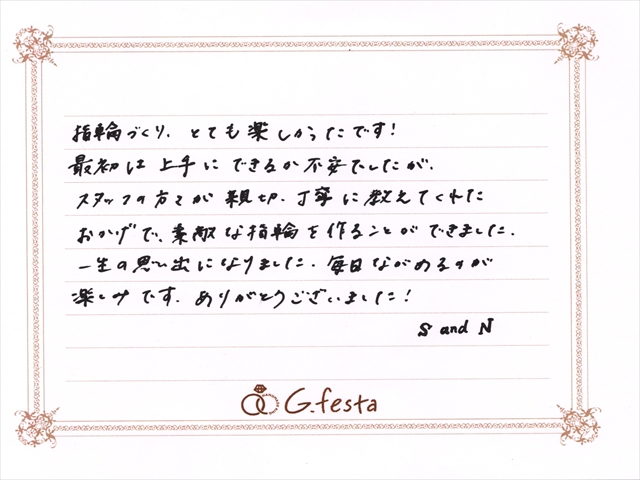 指輪づくり、とても楽しかったです!
最初は上手にできるか不安でしたが、
スタッフの方々が親切、丁寧に教えてくれた
おかげで、素敵な指輪を作ることができました。
一生の思い出になりました。毎日ながめるのが
楽しみです。ありがとうございました!
S and N
G.festa